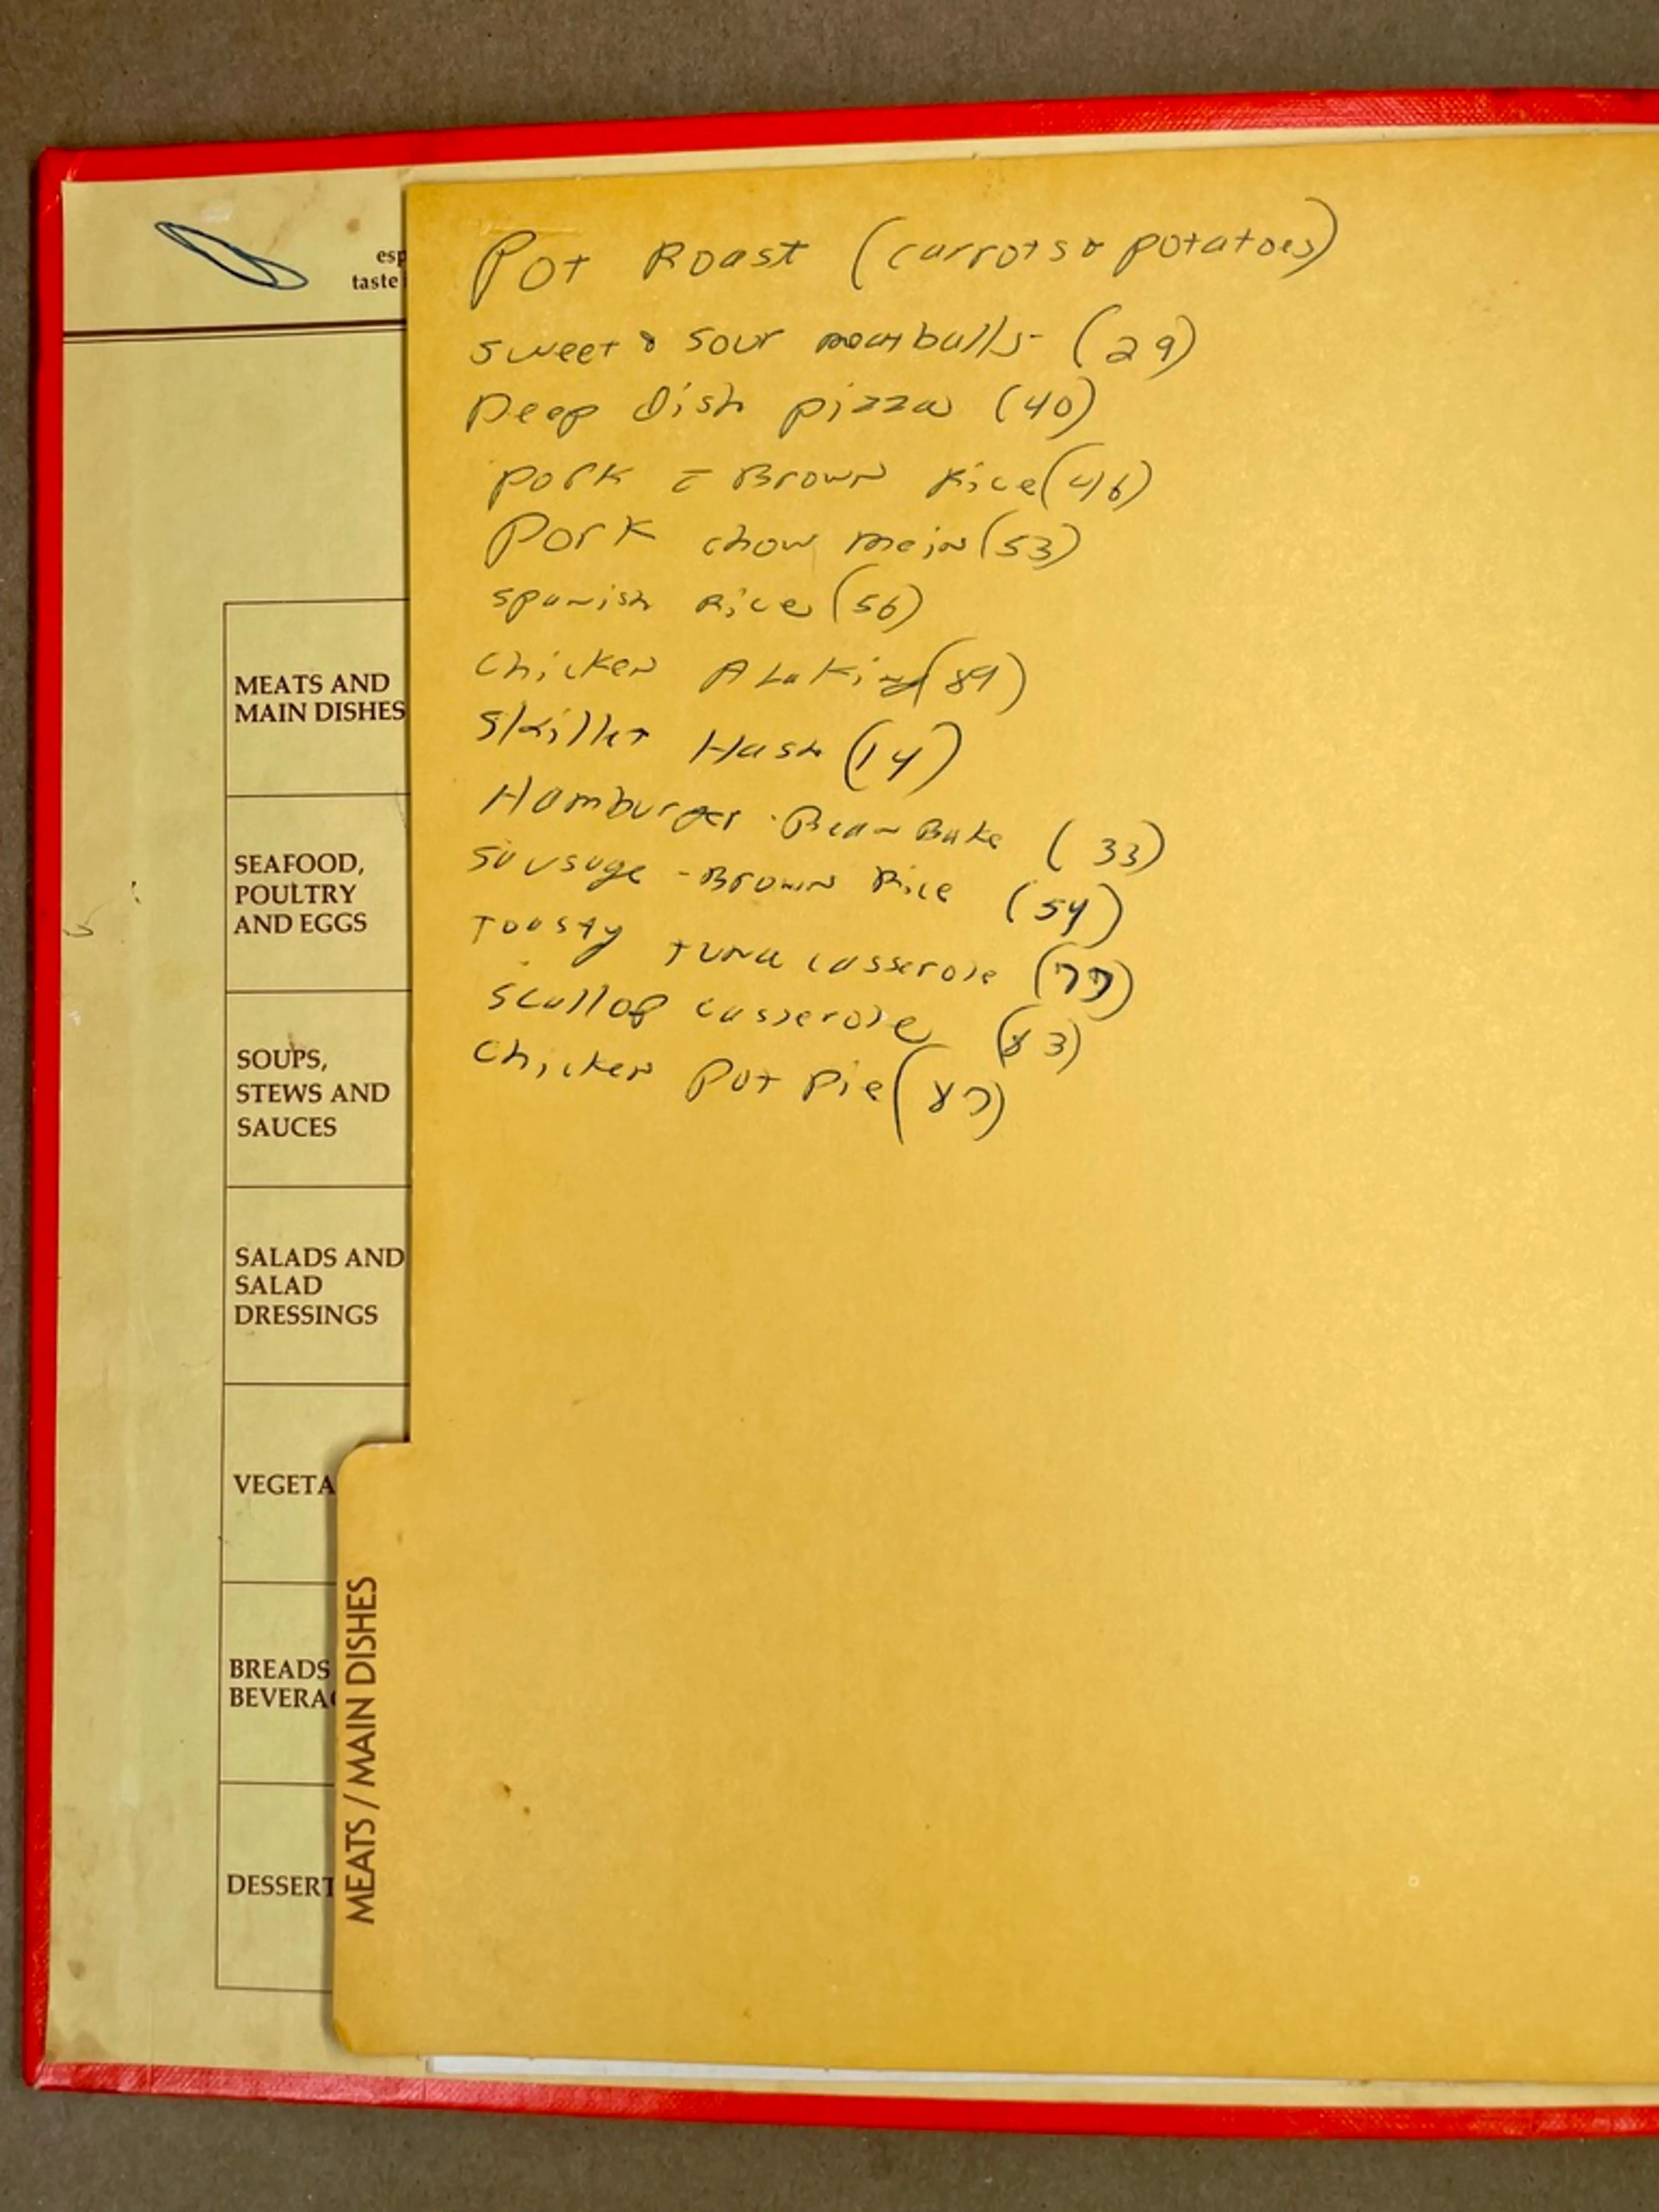 Pot Roast (carrots & potatoes)
sweet & sour meatballs- (29)
Deep Dish pizza (40)
pork c̄ Brown Rice (46)
Pork chow mein (53)
spanish Rice (56)
chicken ALaKing (89)
Skillet Hash (14)
Hamburger - Bean Bake (33)
sausage - Brown Rice (54)
Toasty tuna casserole (77)
scallop casserole (83)
chicken Pot Pie (87)
esp
taste
MEATS AND
MAIN DISHES
SEAFOOD,
POULTRY
AND EGGS
SOUPS,
STEWS AND
SAUCES
SALADS AND
SALAD
DRESSINGS
VEGETA
BREADS
BEVERA
DESSERT
MEATS / MAIN DISHES